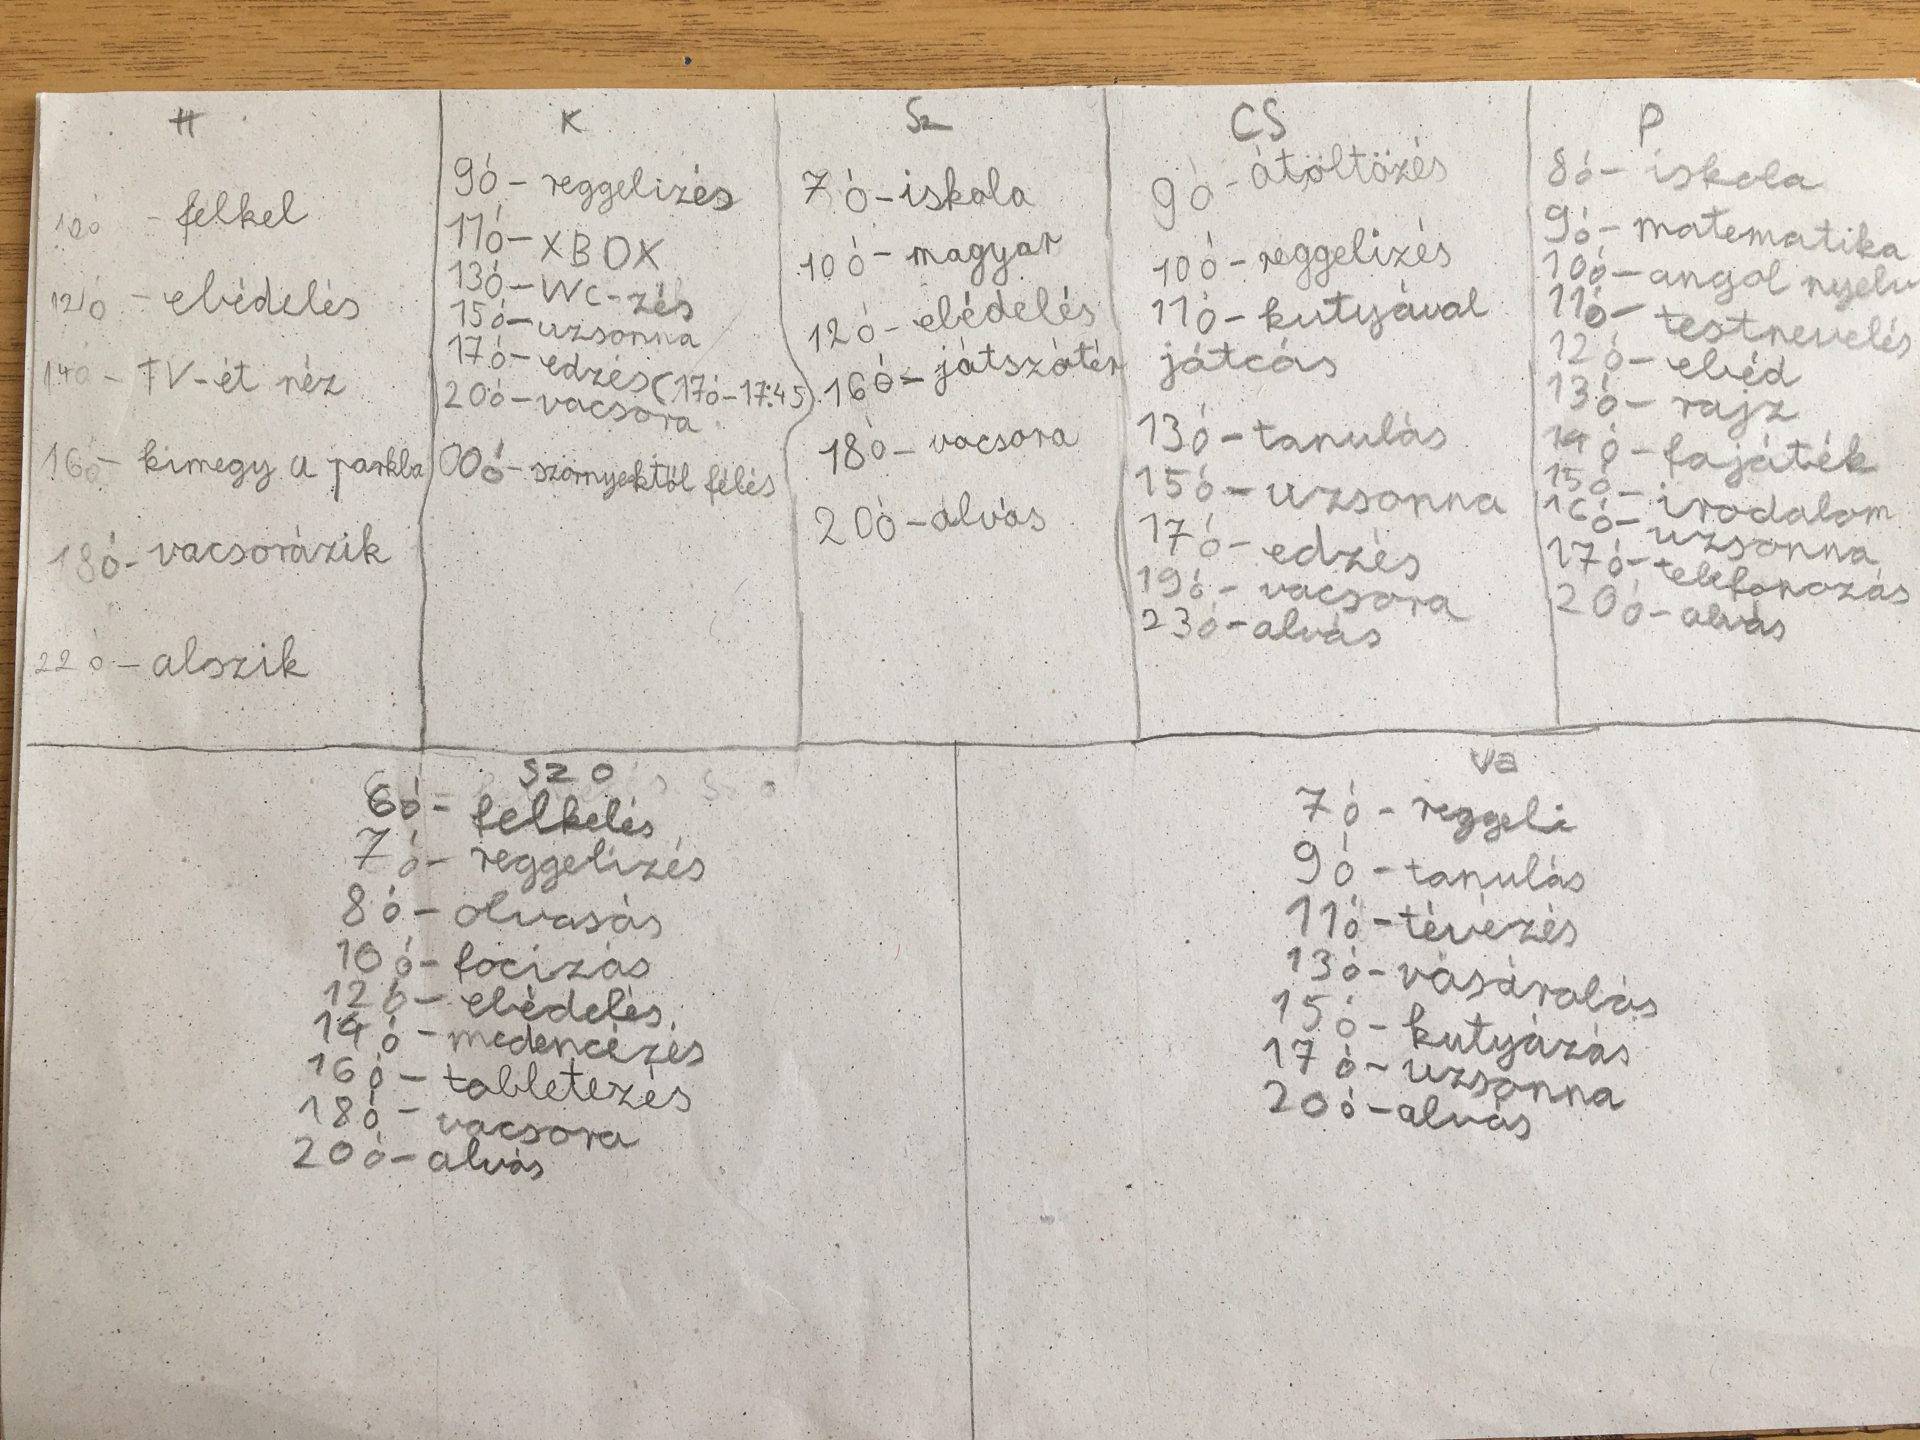 H
10ó - felkel
12ó - ebédelés
14ó - TV-ét néz
16ó - kimegy a parkba
18ó - vacsorázik
22ó - alszik
K
9ó - reggelizés
11ó - XBOX
13ó - WC-zés
15ó - uzsonna
17ó - edzés (17ó-17:45)
20ó - vacsora
00ó - szörnyektől félés
Sz
7ó - iskola
10ó - magyar
12ó - ebédelés
16ó - játszótér
18ó - vacsora
20ó - alvás
CS
9ó - átöltözés
10ó - reggelizés
11ó - kutyával
játcás
13ó - tanulás
15ó - uzsonna
17ó - edzés
19ó - vacsora
23ó - alvás
P
8ó - iskola
9ó - matematika
10ó - angol nyelv
11ó - testnevelés
12ó - ebéd
13ó - rajz
14ó - fajáték
15ó - irodalom
16ó - uzsonna
17ó - telefonozás
20ó - alvás
Szo
6ó - felkelés
7ó - reggelizés
8ó - olvasás
10ó - focizás
12ó - ebédelés
14ó - medencézés
16ó - tabletezés
18ó - vacsora
20ó - alvás
Va
7ó - reggeli
9ó - tanulás
11ó - tévézés
13ó - vásárolás
15ó - kutyázás
17ó - uzsonna
20ó - alvás